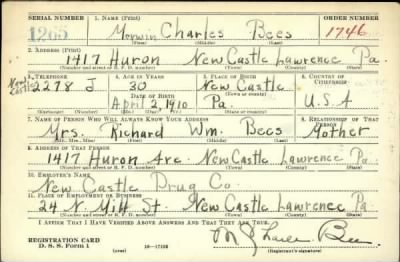 SERIAL NUMBER 1. NAME (Print) ORDER NUMBER
1265 Merwin Charles Bees 1746
(First) (Middle) (Last)
2. ADDRESS (Print)
1417 Huron New Castle Lawrence Pa.
(Number and street or R. F. D. number) (Town) (County) (State)
3. TELEPHONE 4. AGE IN YEARS 5. PLACE OF BIRTH 6. COUNTRY OF CITIZENSHIP
New Castle 2278 J 30 New Castle
DATE OF BIRTH (Town or county)
April 2, 1910 Pa. U.S.A
(Exchange) (Number) (Mo.) (Day) (Yr.) (State or country)
7. NAME OF PERSON WHO WILL ALWAYS KNOW YOUR ADDRESS 8. RELATIONSHIP OF THAT PERSON
Mrs. Richard Wm. Bees Mother
(Mr., Mrs., Miss) (First) (Middle) (Last)
9. ADDRESS OF THAT PERSON
1417 Huron Ave. New Castle Lawrence Pa.
(Number and street or R. F. D. number) (Town) (County) (State)
10. EMPLOYER'S NAME
New Castle Drug Co.
11. PLACE OF EMPLOYMENT OR BUSINESS
24 N. Mill St. New Castle Lawrence Pa.
(Number and street or R. F. D. number) (Town) (County) (State)
I AFFIRM THAT I HAVE VERIFIED ABOVE ANSWERS AND THAT THEY ARE TRUE.
REGISTRATION CARD
D. S. S. Form 1 (over) 16—17105 (Registrant's signature)